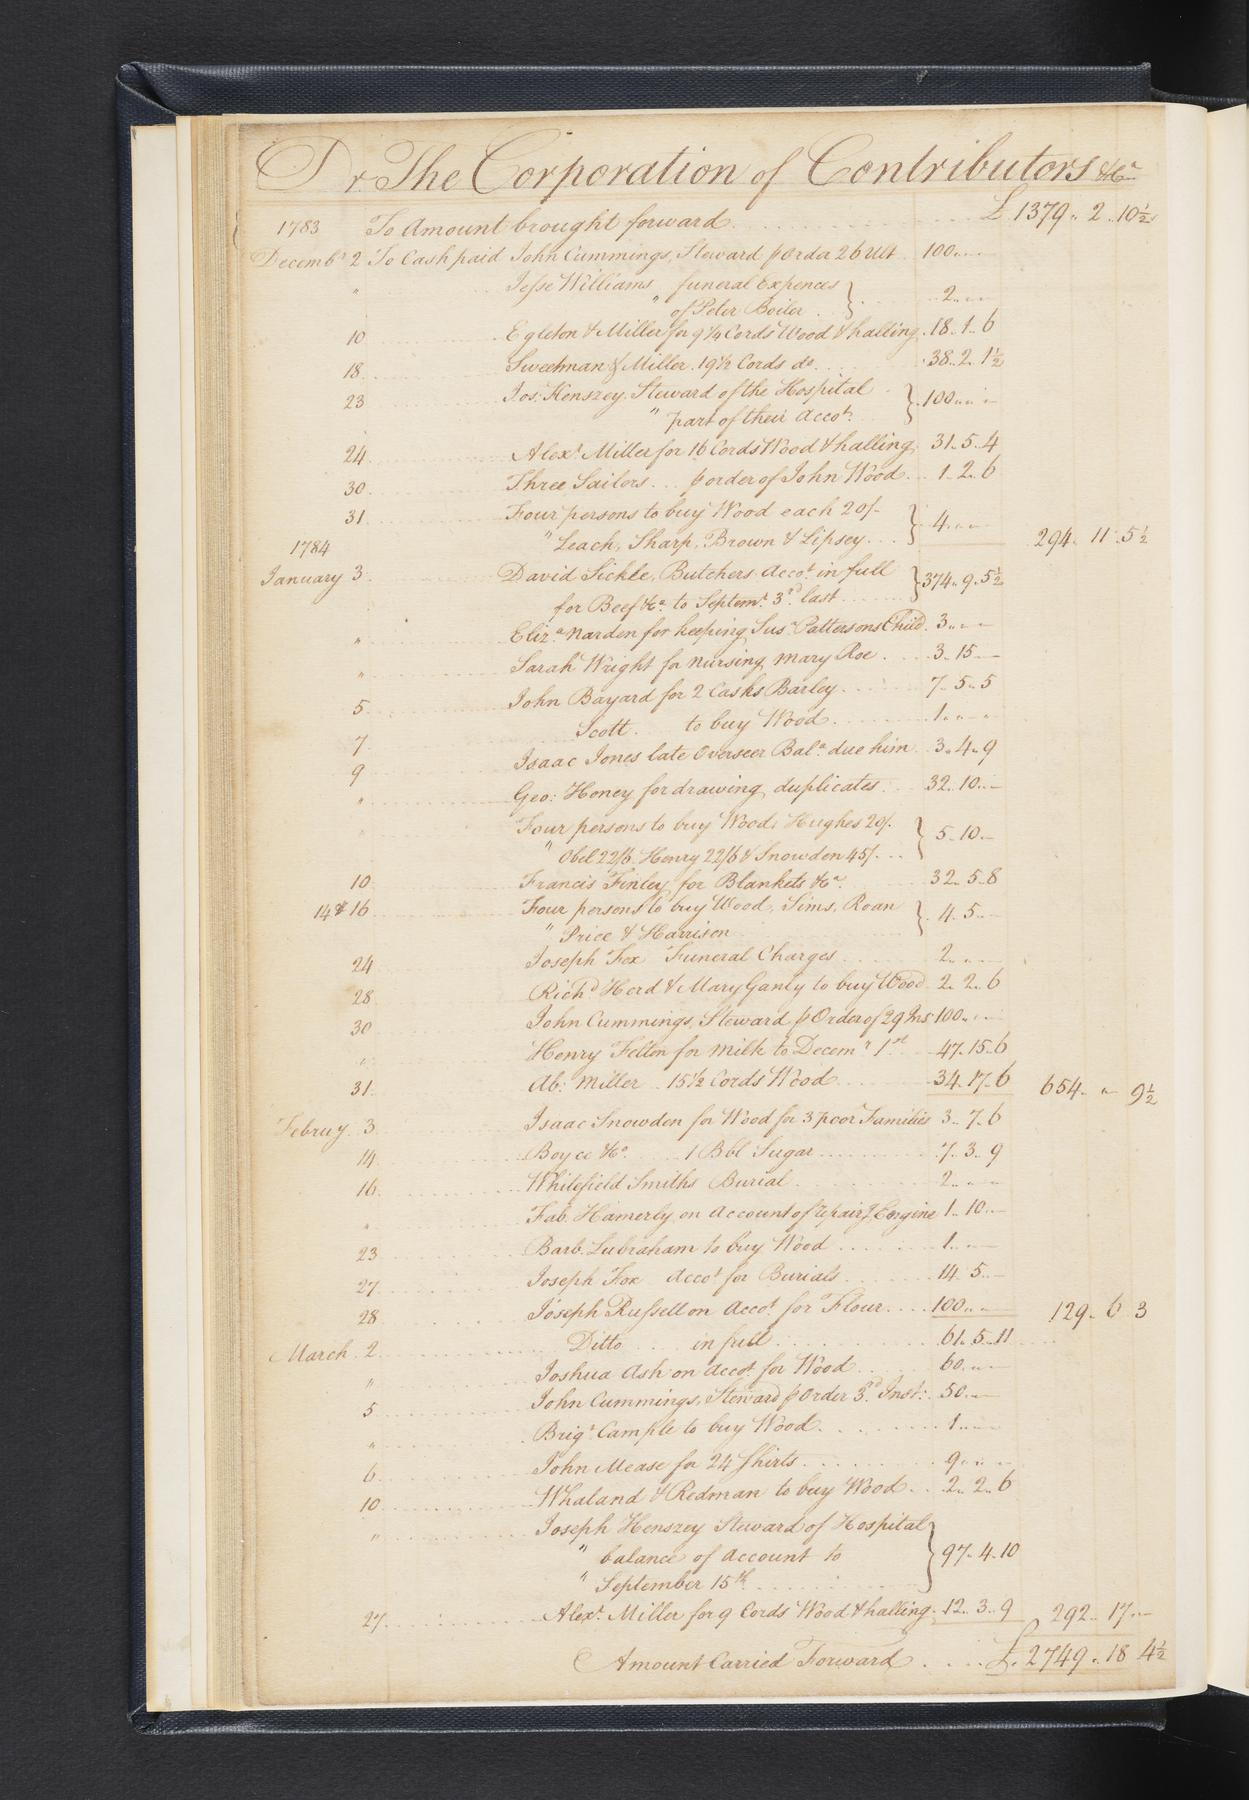 Dr The Corporation of Contributors &ca
1783 To Amount brought forward £ 1379 " 2 " 10½
Decembr 2 To Cash paid John Cummings, Steward p Order 26 Ult 100 " " "
" Jesse Williams funeral Expences
" of Peter Boiler } 2 " " "
10 Egleton & Miller for 9¼ Cords Wood & halling 18 " 1 " 6
18 Sweetman & Miller 19½ Cords do 38 " 2 " 1½
23 Jos: Henszey Steward of the Hospital
" part of their Accot. } 100 " " "
24 Alexr. Miller for 16 Cords Wood & halling 31 " 5 " 4
30 Three Sailors p order of John Wood 1 " 2 " 6
31 Four persons to buy Wood each 20/-
" Leach, Sharp, Brown & Lipsey } 4 " " " 294 " 11 " 5½
1784
January 3 David Sickle, Butchers Accot. in full
for Beef &ca. to Septemr. 3d. last } 374 " 9 " 5½
" Eliza. Narden for keeping Sus. Pattersons Child 3 " " "
" Sarah Wright for nursing Mary Roe 3 " 15 "
5 John Bayard for 2 Casks Barley 7 " 5 " 5
7 Scott to buy Wood 1 " " "
9 Isaac Jones late Overseer Bala. due him 3 " 4 " 9
" Geo: Honey for drawing duplicates 32 " 10 "
" Four persons to buy Wood, Hughes 20/-
" Obel 22/6 Henry 22/6 & Snowden 45/- } 5 " 10 "
10 Francis Finley for Blankets &ca. 32 " 5 " 8
14 & 16 Four persons to buy Wood, Sims, Roan
" Price & Harrison } 4 " 5 "
24 Joseph Fox Funeral Charges 2 " " "
28 Richd. Herd & Mary Ganly to buy Wood 2 " 2 " 6
30 John Cummings, Steward p Order of 29 Ins 100 " " "
" Henry Felten for milk to Decemr 1st 47 " 15 " 6
31 Ab: Miller 15½ Cords Wood 34 " 17 " 6 654 " " 9½
Februy 3 Isaac Snowden for Wood for 3 poor Families 3 " 7 " 6
14 Boyce &Co. 1 Bbl Sugar 7 " 3 " 9
16 Whitefield Smiths Burial 2 " " "
" Fab. Hamerly on Account of repairg. Engine 1 " 10 "
23 Barb. Lubraham to buy Wood 1 " " "
27 Joseph Fox Accot for Burials 14 " 5 "
28 Joseph Russell on Accot. for Flour 100 " " " 129 " 6 " 3
March 2 Ditto in full 61 " 5 " 11
" Joshua Ash on Accot for Wood 60 " " "
5 John Cummings, Steward p Order 3d. Inst: 50 " " "
" Brigt. Cample to buy Wood 1 " " "
6 John Mease for 24 Shirts 9 " " "
10 Whaland & Redman to buy Wood 2 " 2 " 6
" Joseph Henszey Steward of Hospital
" balance of Account to } 97 " 4 " 10
" September 15th
27 Alexr. Miller for 9 Cords Wood & halling 12 " 3 " 9 292 " 17 "
Amount Carried Forward £ 2749 " 18 " 4½